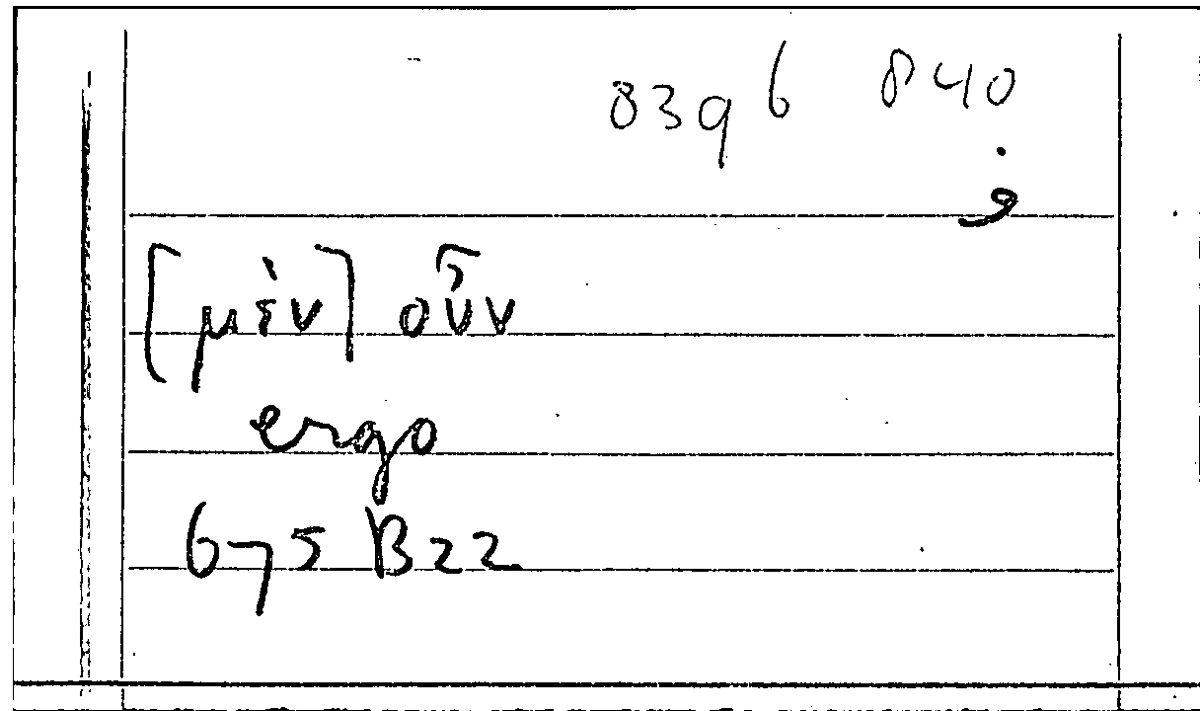 839 b 840
ف
[μὲν] οὖν
ergo
675 B22